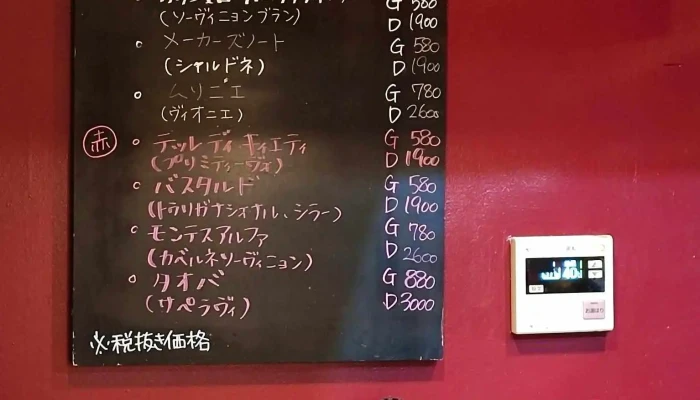 G 580
(ソーヴィニョンブラン) D 1900
○ メーカーズノート G 580
(シャルドネ) D 1900
○ ムリゴエ G 780
(ヴィオニエ) D 2600
赤 ○ テッレ ディ キィエティ G 580
(プリミティーヴォ) D 1900
○ バスタルド G 580
(トゥリガナショナル、シラー) D 1900
○ モンテスアルファ G 780
(カベルネソーヴィニョン) D 2600
○ タオバ G 880
(サペラヴィ) D 3000
※税抜き価格
40